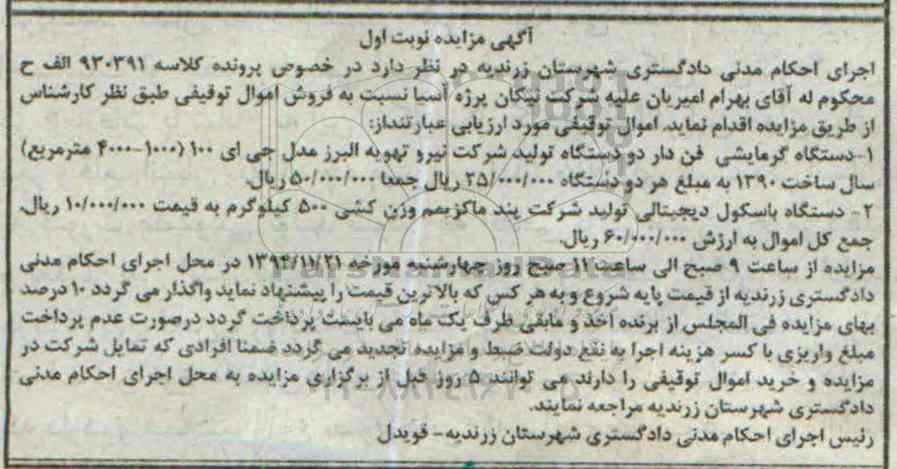 آگهی مزایده نوبت اول
اجرای احکام مدنی دادگستری شهرستان زرندیه در نظر دارد در خصوص پرونده کلاسه ۹۳۰۳۹۱ الف ح
محکوم له آقای بهرام امیریان علیه شرکت نیکان پرژه آسیا نسبت به فروش اموال توقیفی طبق نظر کارشناس
از طریق مزایده اقدام نماید. اموال توقیفی مورد ارزیابی عبارتنداز:
۱-دستگاه گرمایشی فن دار دو دستگاه تولید شرکت نیرو تهویه البرز مدل جی ای ۱۰۰ (۱۰۰۰-۴۰۰۰ مترمربع)
سال ساخت ۱۳۹۰ به مبلغ هر دو دستگاه ۲۵/۰۰۰/۰۰۰ ریال جمعا ۵۰/۰۰۰/۰۰۰ ریال.
۲- دستگاه باسکول دیجیتالی تولید شرکت پند ماکزیمم وزن کشی ۵۰۰ کیلوگرم به قیمت ۱۰/۰۰۰/۰۰۰ ریال.
جمع کل اموال به ارزش ۶۰/۰۰۰/۰۰۰ ریال.
مزایده از ساعت ۹ صبح الی ساعت ۱۱ صبح روز چهارشنبه مورخه ۱۳۹۴/۱۱/۲۱ در محل اجرای احکام مدنی
دادگستری زرندیه از قیمت پایه شروع و به هر کس که بالاترین قیمت را پیشنهاد نماید واگذار می گردد ۱۰ درصد
بهای مزایده فی المجلس از برنده اخذ و مابقی ظرف یک ماه می بایست پرداخت گردد درصورت عدم پرداخت
مبلغ واریزی با کسر هزینه اجرا به نفع دولت ضبط و مزایده تجدید می گردد ضمنا افرادی که تمایل شرکت در
مزایده و خرید اموال توقیفی را دارند می توانند ۵ روز قبل از برگزاری مزایده به محل اجرای احکام مدنی
دادگستری شهرستان زرندیه مراجعه نمایند.
رئیس اجرای احکام مدنی دادگستری شهرستان زرندیه- قویدل
ParsNamadData